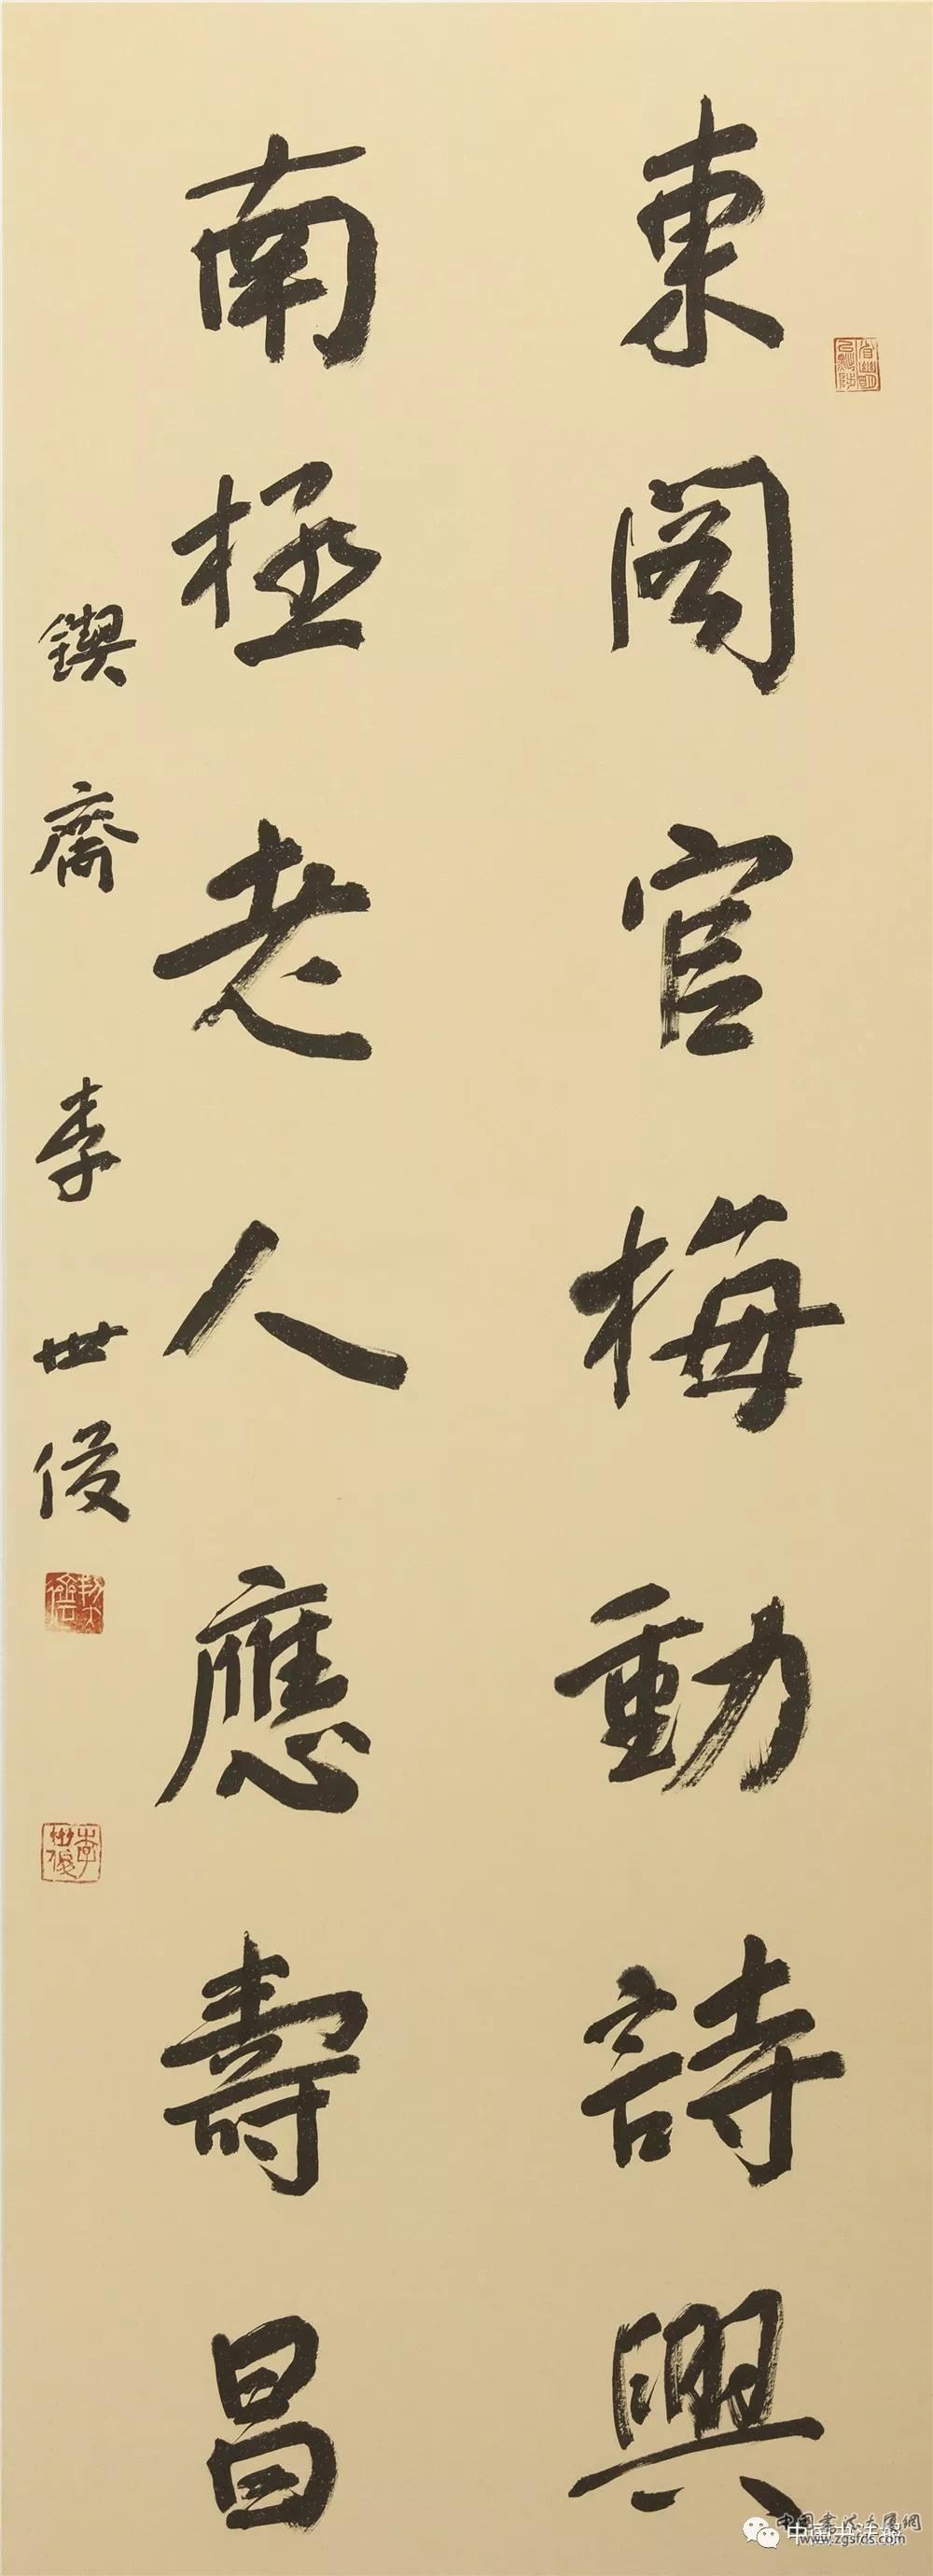 東閣官梅動詩興
南極老人應壽昌
鍥齋 李世俊
李世俊
中国书法
www.zgsfds.com